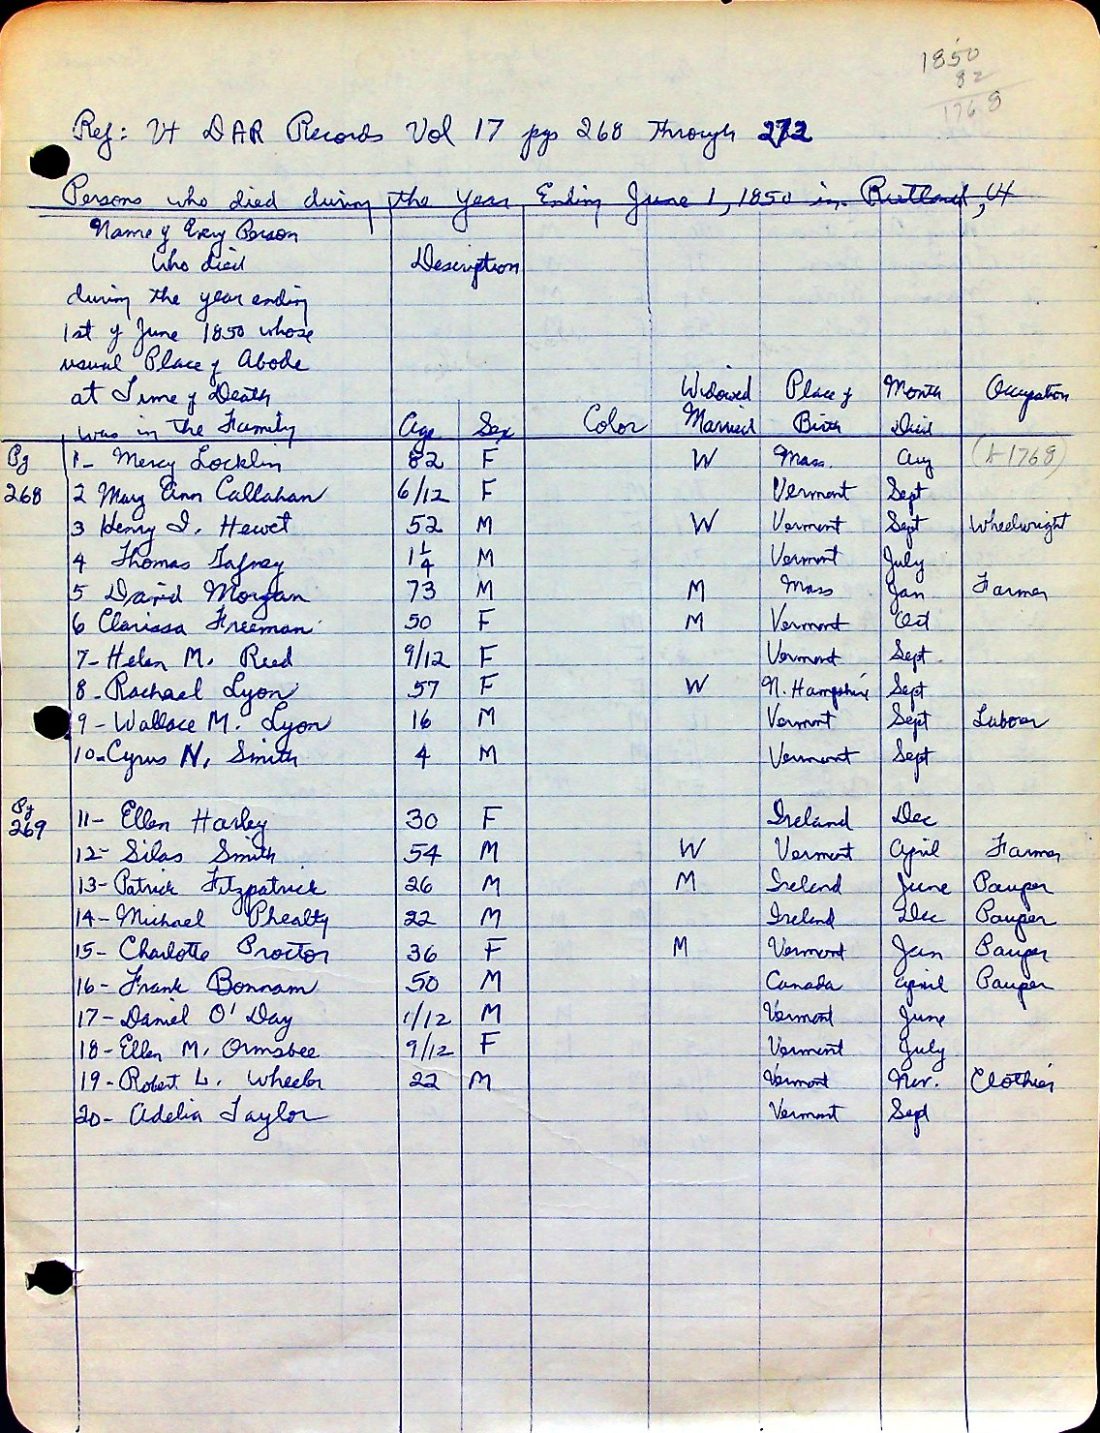 1850
82
1768
Ref: Vt DAR Records Vol 17 pgs 268 Through 272
Persons who died during the Year Ending June 1, 1850 in Rutland, Vt
Name of Every Person
who died
Description
during the year ending
1st of June 1850 whose
usual Place of Abode
at Time of Death
Widowed Place of Month Occupation
was in the Family Age Sex Color Married Birth Died
Pg 1- Mercy Locklin 82 F W Mass. Aug (b 1768)
268 2 Mary Ann Callahan 6/12 F Vermont Sept
3 Henry I. Hewet 52 M W Vermont Sept Wheelwright
4 Thomas Gafney 1 1/4 M Vermont July
5 David Morgan 73 M M Mass Jan Farmer
6 Clarissa Freeman 50 F M Vermont Oct
7- Helen M. Reed 9/12 F Vermont Sept.
8- Rachael Lyon 57 F W N. Hampshire Sept
9- Wallace M. Lyon 16 M Vermont Sept Laborer
10- Cyrus N. Smith 4 M Vermont Sept
Pg
269 11- Ellen Harley 30 F Ireland Dec
12- Silas Smith 54 M W Vermont April Farmer
13- Patrick Fitzpatrick 26 M M Ireland June Pauper
14- Michael Phealty 22 M Ireland Dec Pauper
15- Charlotte Proctor 36 F M Vermont Jan Pauper
16- Frank Bonnam 50 M Canada April Pauper
17- Daniel O'Day 1/12 M Vermont June
18- Ellen M. Ormsbee 9/12 F Vermont July
19- Robert L. Wheeler 22 M Vermont Nov. Clothier
20- Adelia Taylor Vermont Sept